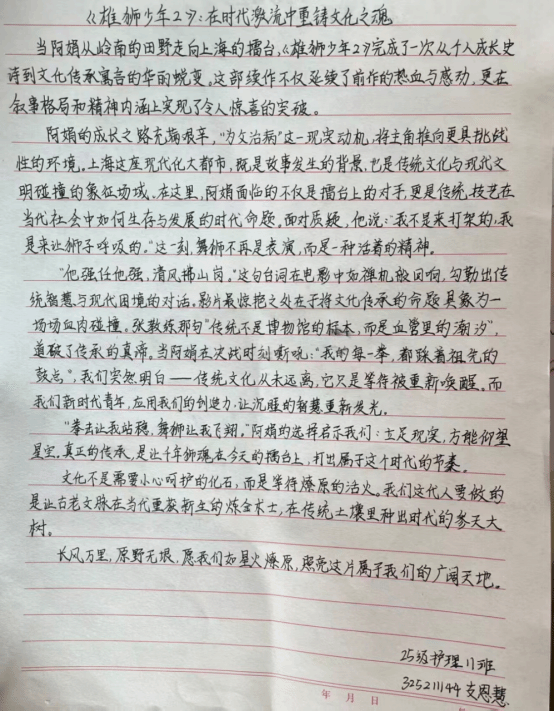 《雄狮少年2》:在时代激流中重铸文化之魂
当阿娟从岭南的田野走向上海的擂台,《雄狮少年2》完成了一次从个人成长史
诗到文化传承寓言的华丽蜕变。这部续作不仅延续了前作的热血与感动,更在
叙事格局和精神内涵上实现了令人惊喜的突破。
阿娟的成长之路充满艰辛,"为父治病"这一现实动机,将主角推向更具挑战
性的环境。上海这座现代化大都市,既是故事发生的背景,也是传统文化与现代文
明碰撞的象征场域。在这里,阿娟面临的不仅是擂台上的对手,更是传统技艺在
当代社会中如何生存与发展的时代命题。面对质疑,他说:"我不是来打架的,我
是来让狮子呼吸的。"这一刻,舞狮不再是表演,而是一种活着的精神。
"他强任他强,清风拂山岗。"这句台词在电影中如禅机般回响,勾勒出传
统智慧与现代困境的对话。影片最惊艳之处在于将文化传承的命题具象为一
场场血肉碰撞。张教练那句"传统不是博物馆的标本,而是血管里的潮汐",
道破了传承的真谛。当阿娟在决战时刻嘶吼:"我的每一拳,都踩着祖先的
鼓点",我们突然明白——传统文化从未远离,它只是等待被重新唤醒。而
我们新时代青年,应用我们的创造力,让沉睡的智慧重新发光。
"拳击让我站稳,舞狮让我飞翔。"阿娟的选择启示我们:立足现实,方能仰望
星空,真正的传承,是让千年狮魂在今天的擂台上,打出属于这个时代的节奏。
文化不是需要小心呵护的化石,而是等待燎原的活火。我们这代人要做的
是让古老文脉在当代重获新生的炼金术士,在传统土壤里种出时代的参天大
树。
长风万里,原野无垠,愿我们如星火燎原,照亮这片属于我们的广阔天地。
25级护理11班
325211144 支恩慧
年 月 日